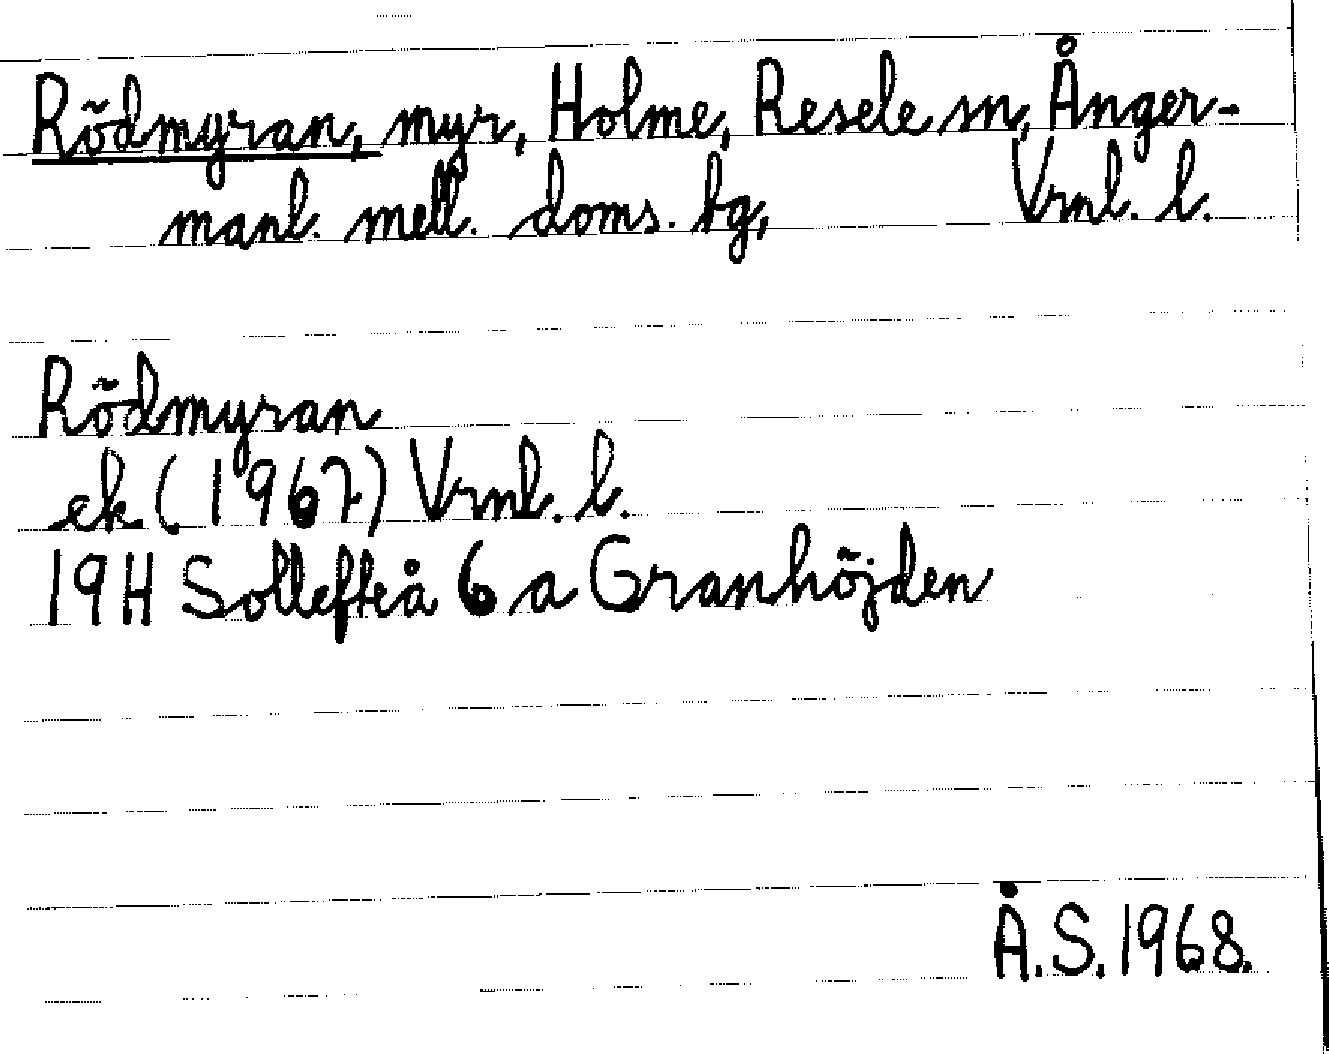 Rödmyran, myr, Holme, Resele sn, Ånger-
manl. mell. doms. bg, Vrnl. l.
Rödmyran
ek (1967) Vrnl. l.
19H Sollefteå 6 a Granhöjden
Å.S. 1968.